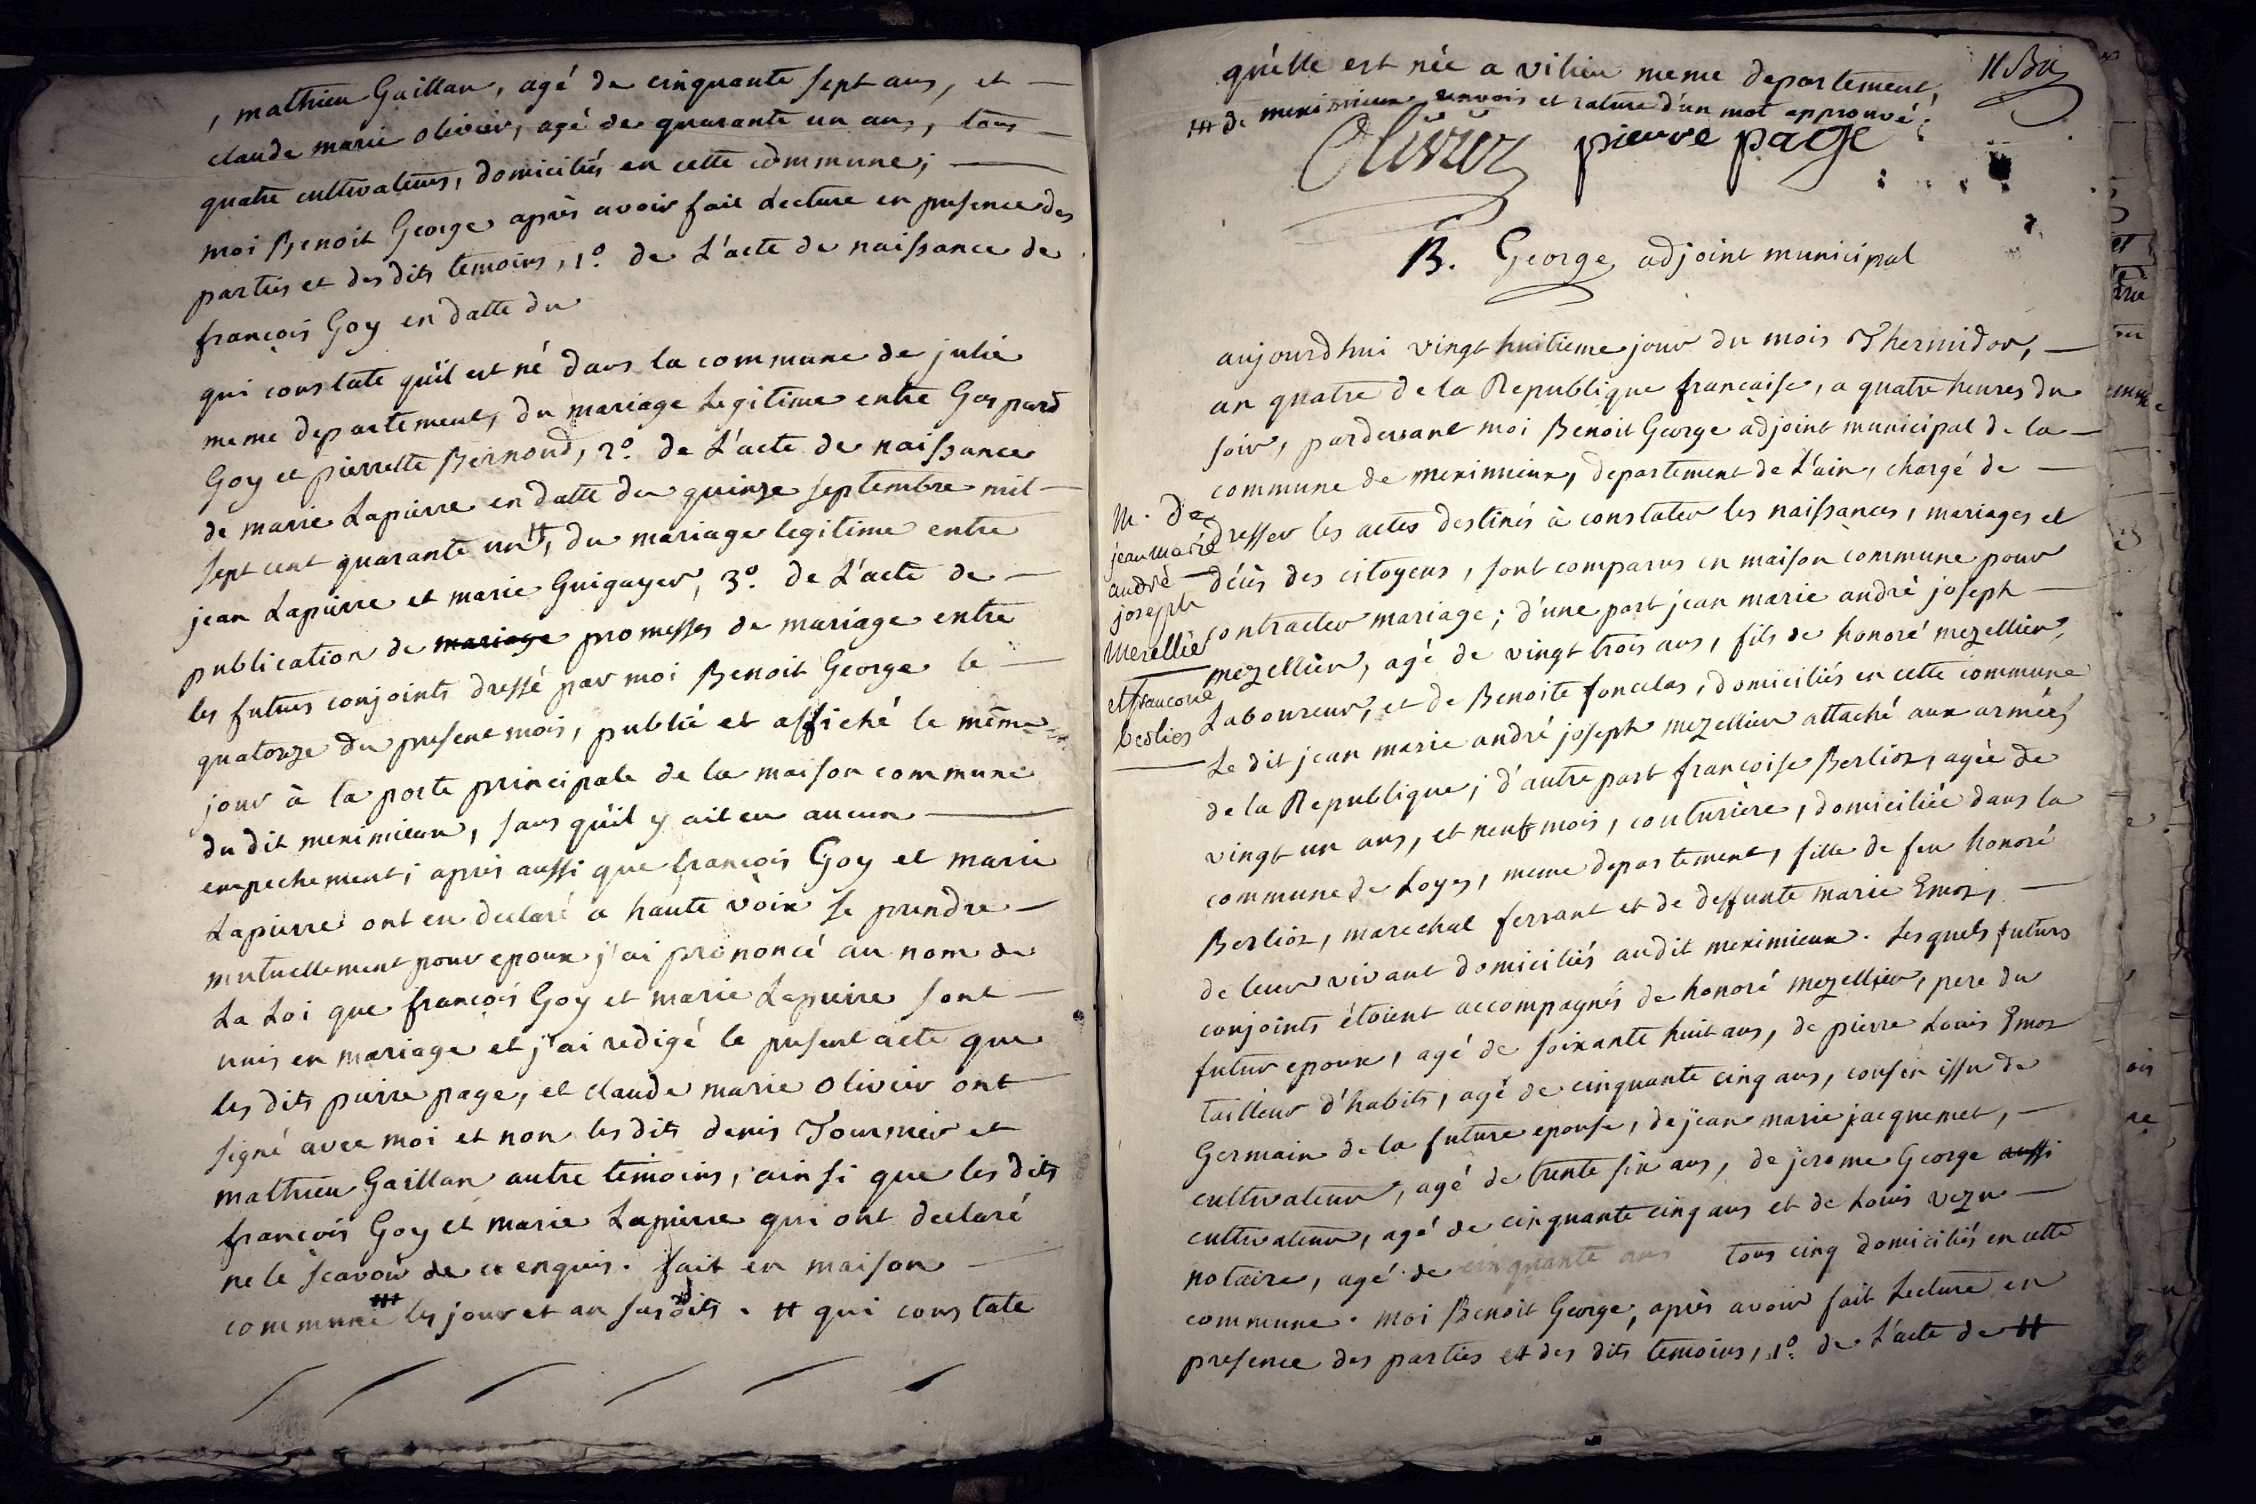 , mathieu Gaillan, agé de cinquante sept ans, et
claude marie olivier, agé de quarante un ans, tous
quatre cultivateurs, domiciliés en cette commune;
moi Benoit George après avoir fait Lecture en presence des
parties et des dits temoins, 1º. de L'acte de naissance de
françois Goy en datte du
qui constate qu'il est né dans la commune de julie
meme departement, du mariage Legitime entre Gaspard
Goy et pierrette Bernond, 2º. de L'acte de naissance
de marie Lapierre en datte du quinze septembre mil
sept cent quarante un #, du mariage legitime entre
jean Lapierre et marie Guigayer, 3º. de L'acte de
publication de mariage promesses de mariage entre
les futurs conjoints dressé par moi Benoit George le
quatorze du present mois, publié et affiché le même
jour à la porte principale de la maison commune
du dit meximieux, sans qu'il y ait eu aucun
empechement; après aussi que françois Goy et marie
Lapierre ont eu declaré a haute voix se prendre
mutuellement pour epoux j'ai prononcé au nom de
La Loi que françois Goy et marie Lapierre sont
unis en mariage et j'ai redigé le present acte que
les dits pierre page, et claude marie olivier ont
signé avec moi et non les dits denis Tournier et
mathieu Gaillan autre temoins, ainsi que les dits
françois Goy et marie Lapierre qui ont declaré
ne le scavoir de ce enquis. fait en maison
commune ## les jour et an susdits. # qui constate
qu'elle est née a vilieu meme departement,
## de meximieux renvois et rature d'un mot approuvé.
Olivier pierre page
B. George adjoint municipal
aujourd'hui vingt huitieme jour du mois Thermidor,
an quatre de la Republique française, a quatre heures du
soir, pardevant moi Benoit George adjoint municipal de la
commune de meximieux, departement de L'ain, chargé de
dresser les actes destinés à constater les naissances, mariages et
décès des citoyens, sont comparus en maison commune pour
contracter mariage; d'une part jean marie andré joseph
mezellier, agé de vingt trois ans, fils de honoré mezellier,
Laboureur, et de Benoite foncelas, domiciliés en cette commune
Le dit jean marie andré joseph mezellier attaché aux armées
de la Republique; d'autre part françoise Berlioz, agée de
vingt un ans, et neuf mois, couturière, domiciliée dans la
commune de Loyes, meme departement, fille de feu honoré
Berlioz, marechal ferrant et de deffunte marie Emoz,
de leur vivant domiciliés audit meximieux. Lesquels futurs
conjoints étoient accompagnés de honoré mezellier, pere du
futur epoux, agé de soixante huit ans, de pierre Louis Emoz
tailleur d'habits, agé de cinquante cinq ans, cousin issu de
Germain de la future epouse, de jean marie jacquemet,
cultivateur, agé de trente six ans, de jerome George aussi
cultivateur, agé de cinquante cinq ans et de Louis vezu
notaire, agé de cinquante ans tous cinq domiciliés en cette
commune. moi Benoit George, après avoir fait Lecture en
presence des parties et des dits temoins, 1º. de L'acte de #
m. de
jean marie
andré
joseph
Merellier
et francoise
berlios